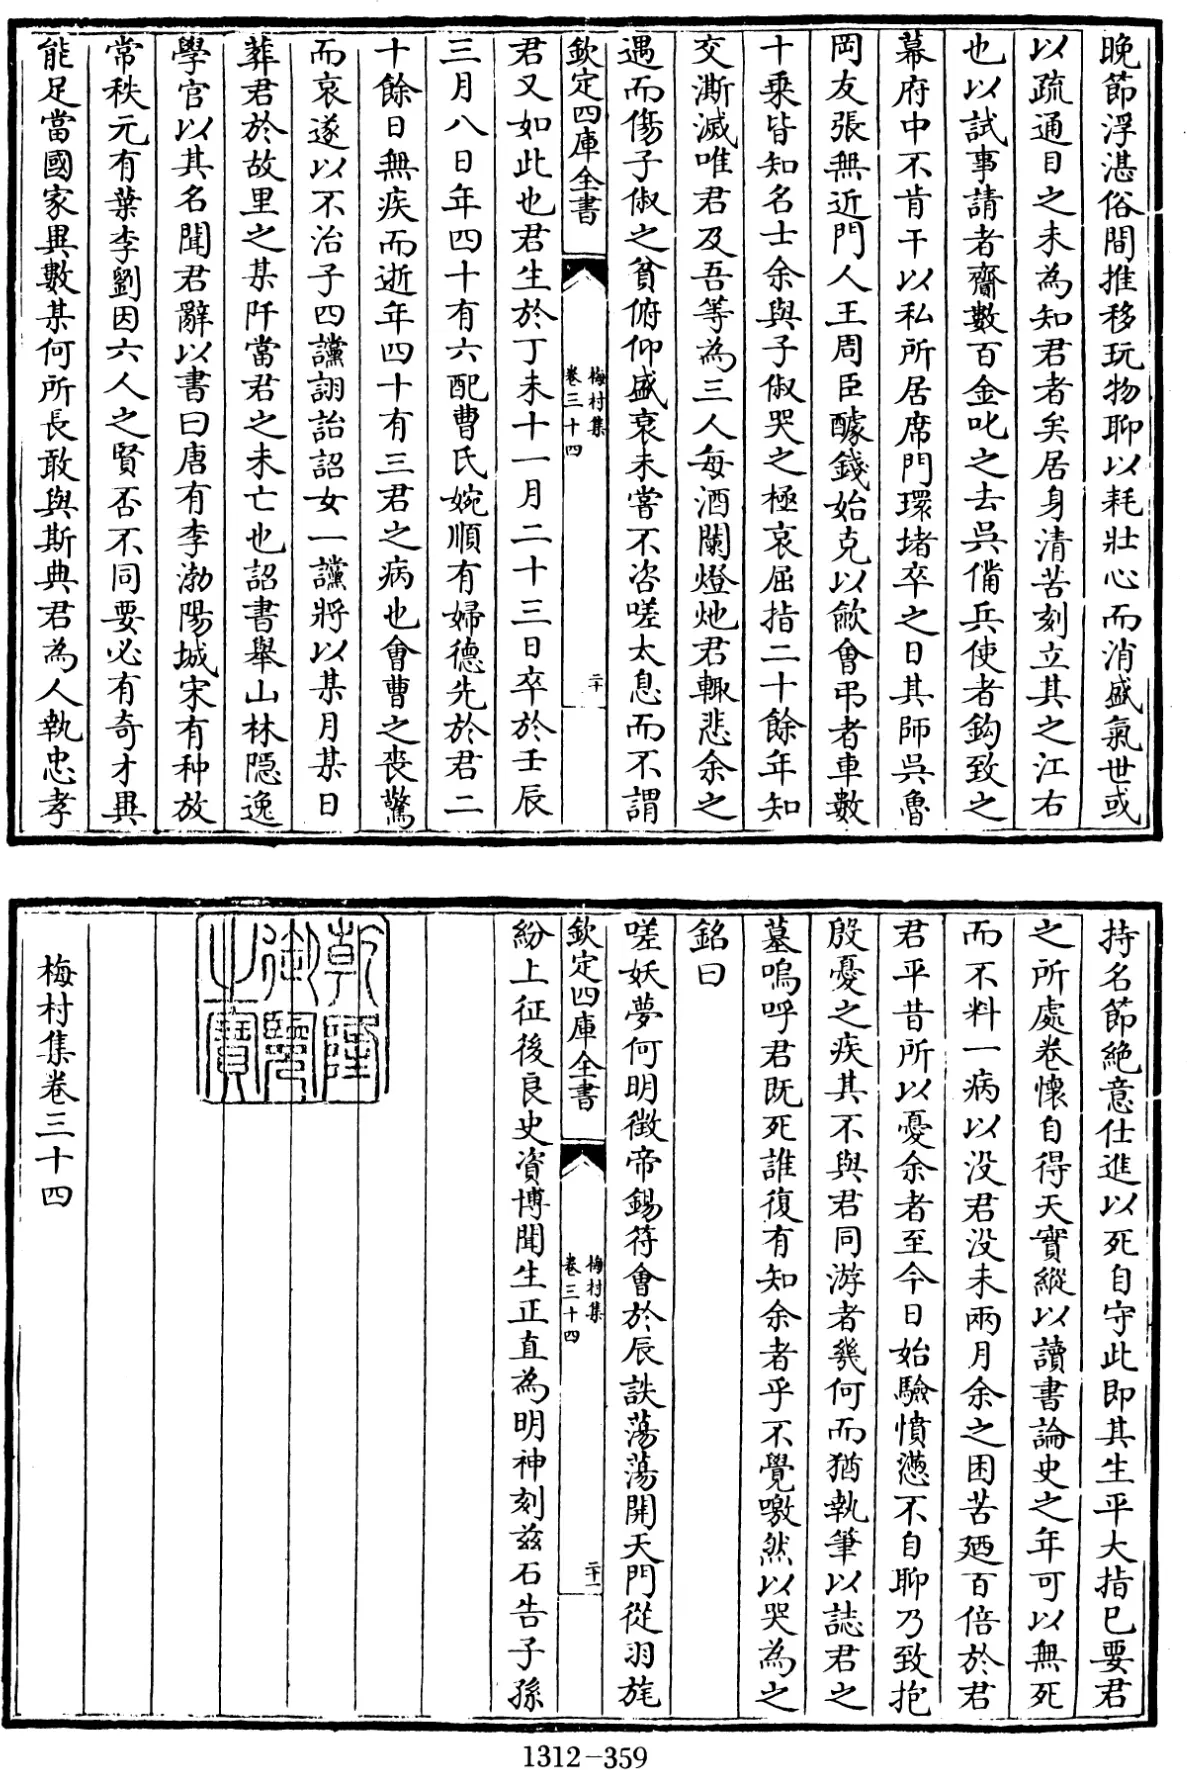 晚節浮湛俗間推移玩物聊以耗壯心而消盛氣世或
以疏通目之未為知君者矣居身清苦刻立其之江右
也以試事請者齎數百金叱之去吳備兵使者鈎致之
幕府中不肯干以私所居席門環堵卒之日其師吳魯
岡友張無近門人王周臣醵錢始克以歛會弔者車數
十乗皆知名士余與子俶哭之極哀屈指二十餘年知
交澌滅唯君及吾等為三人每酒闌燈灺君輙悲余之
遇而傷子俶之貧俯仰盛衰未嘗不咨嗟太息而不謂
欽定四庫全書
梅村集
卷三十四
二十
君又如此也君生於丁未十一月二十三日卒於壬辰
三月八日年四十有六配曹氏婉順有婦德先於君二
十餘日無疾而逝年四十有三君之病也會曹之喪驚
而哀遂以不治子四讜詡詒詔女一讜將以某月某日
葬君於故里之某阡當君之未亡也詔書舉山林隱逸
學官以其名聞君辭以書曰唐有李渤陽城宋有种放
常秩元有葉李劉因六人之賢否不同要必有竒才異
能足當國家異數某何所長敢與斯典君為人執忠孝
持名節絶意仕進以死自守此即其生平大指已要君
之所處卷懷自得天實縱以讀書論史之年可以無死
而不料一病以没君没未兩月余之困苦廼百倍於君
君平昔所以憂余者至今日始驗憤懣不自聊乃致抱
殷憂之疾其不與君同游者㡬何而猶執筆以誌君之
墓嗚呼君既死誰復有知余者乎不覺噭然以哭為之
銘曰
嗟妖夢何明徵帝錫符會於辰詄蕩蕩開天門從羽旄
欽定四庫全書
梅村集
卷三十四
二十一
紛上征後良史資博聞生正直為明神刻兹石告子孫
乾隆御覽之寶
梅村集卷三十四
1312-359